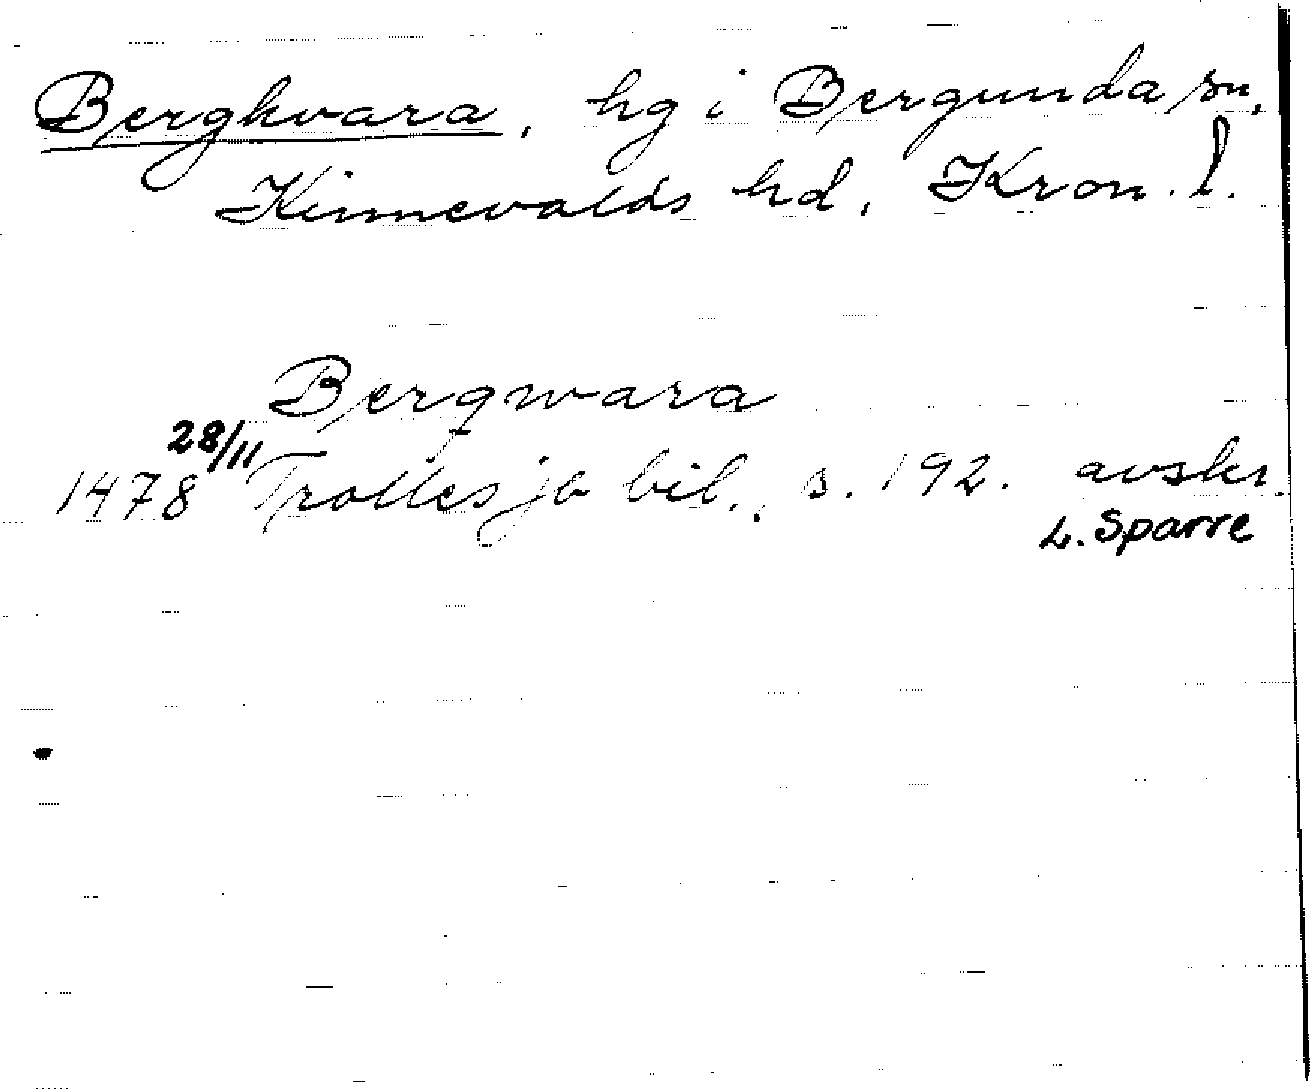 Bergkvara, hg i Bergunda sn,
Kinnevalds hd, Kron. l.
Bergwara
1478 28/11 Trolles jb bil., s. 192. avskr.
L. Sparre